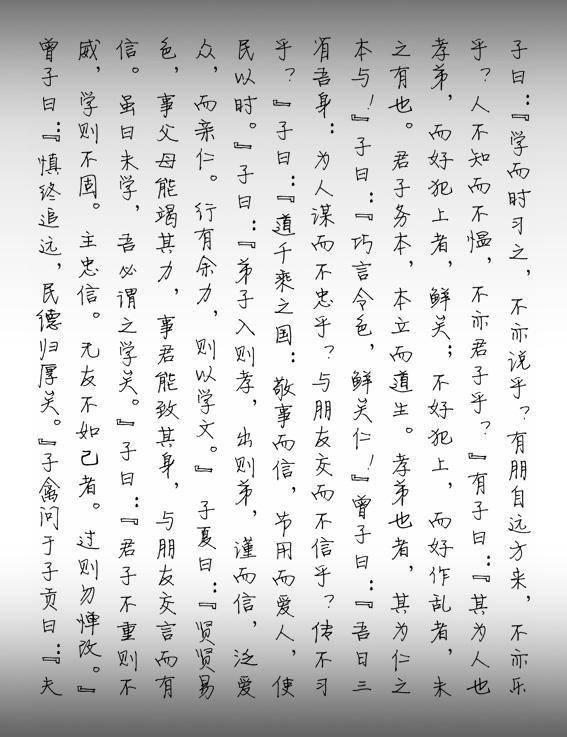 子曰：『学而时习之，不亦说乎？有朋自远方来，不亦乐
乎？人不知而不愠，不亦君子乎？』有子曰：『其为人也
孝弟，而好犯上者，鲜矣；不好犯上，而好作乱者，未
之有也。君子务本，本立而道生。孝弟也者，其为仁之
本与！』子曰：『巧言令色，鲜矣仁！』曾子曰：『吾日三
省吾身：为人谋而不忠乎？与朋友交而不信乎？传不习
乎？』子曰：『道千乘之国：敬事而信，节用而爱人，使
民以时。』子曰：『弟子入则孝，出则弟，谨而信，泛爱
众，而亲仁。行有余力，则以学文。』子夏曰：『贤贤易
色，事父母能竭其力，事君能致其身，与朋友交言而有
信。虽曰未学，吾必谓之学矣。』子曰：『君子不重则不
威，学则不固。主忠信。无友不如己者。过则勿惮改。』
曾子曰：『慎终追远，民德归厚矣。』子禽问于子贡曰：『夫